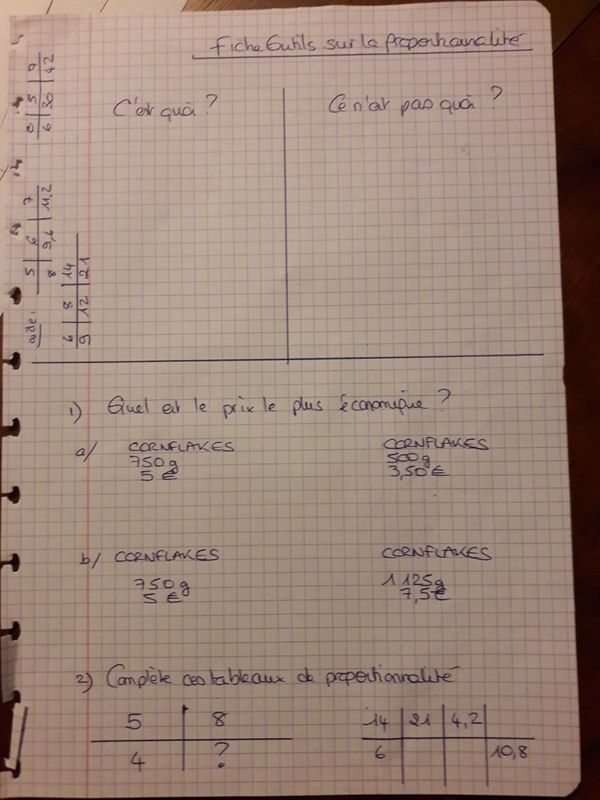 Fiche Outils sur la proportionnalité
C'est quoi ?
Ce n'est pas quoi ?
aide :
5 6 7
8 9,6 11,2
0 5 9
6 30 42
6 8 14
9 12 21
1) Quel est le prix le plus économique ?
a/ CORNFLAKES
750g
5 €
CORNFLAKES
500g
3,50 €
b/ CORNFLAKES
750g
5 €
CORNFLAKES
1125g
7,5€
2) Complète ces tableaux de proportionnalité
5 8
4 ?
14 21 4,2
6 10,8